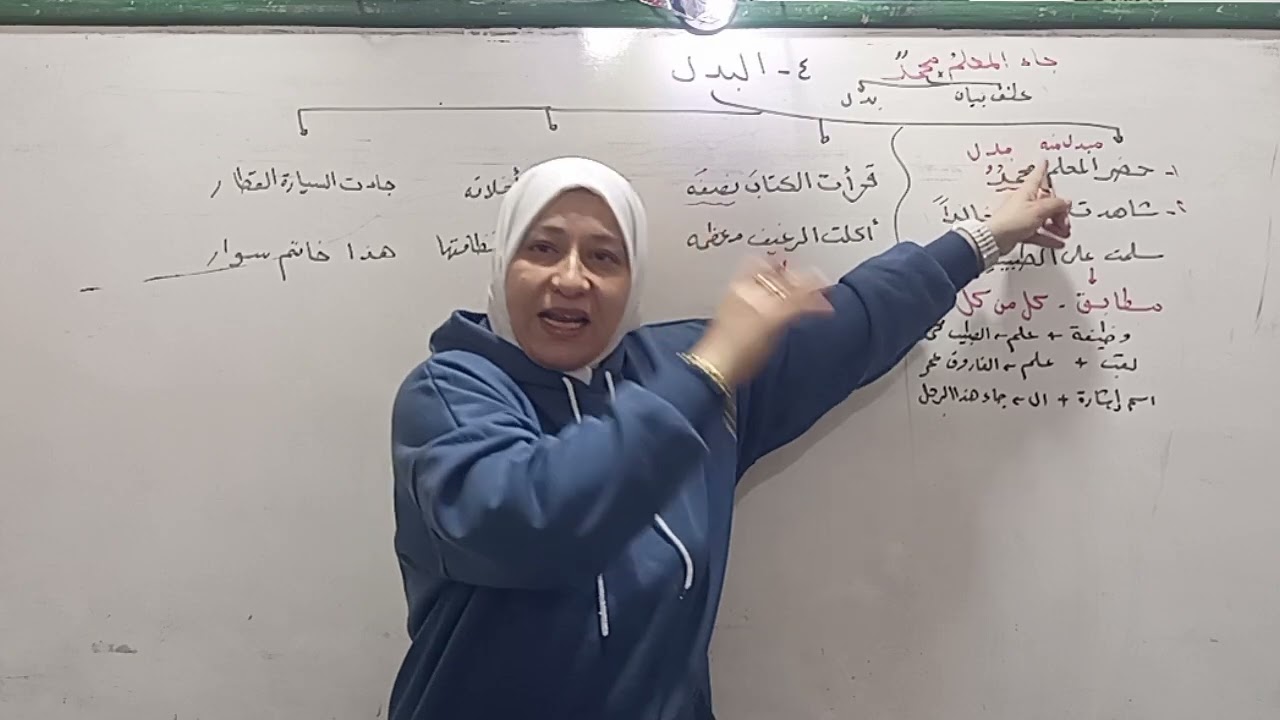 جاء المعلمُ محمدٌ
عطف بيان بدل
٤- البدل
مبدل منه بدل
١- حضر المعلم محمدٌ
٢- شاهدت خالداً
سلمت على الطبيب
مطابق - كل من كل
وظيفة + علم ← الطبيب
لقب + علم ← الفاروق عمر
اسم إشارة + ال ← جاء هذا الرجل
قرأت الكتابَ نصفَه
أكلت الرغيف معظمه
أخلاقه
نظافتها
جاءت السيارة القطار
هذا خاتم سوار